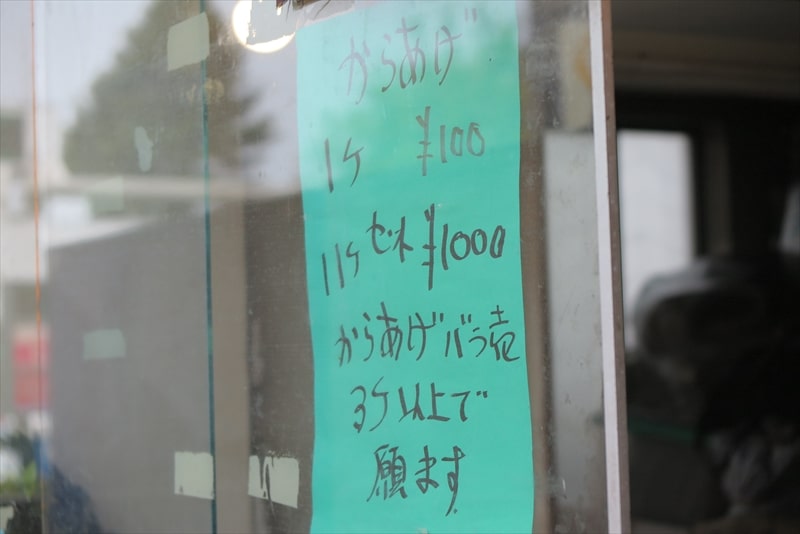 からあげ
1ケ ¥100
11ケ ゼネ ¥1000
からあげバラ売
3ケ以上で
願ます